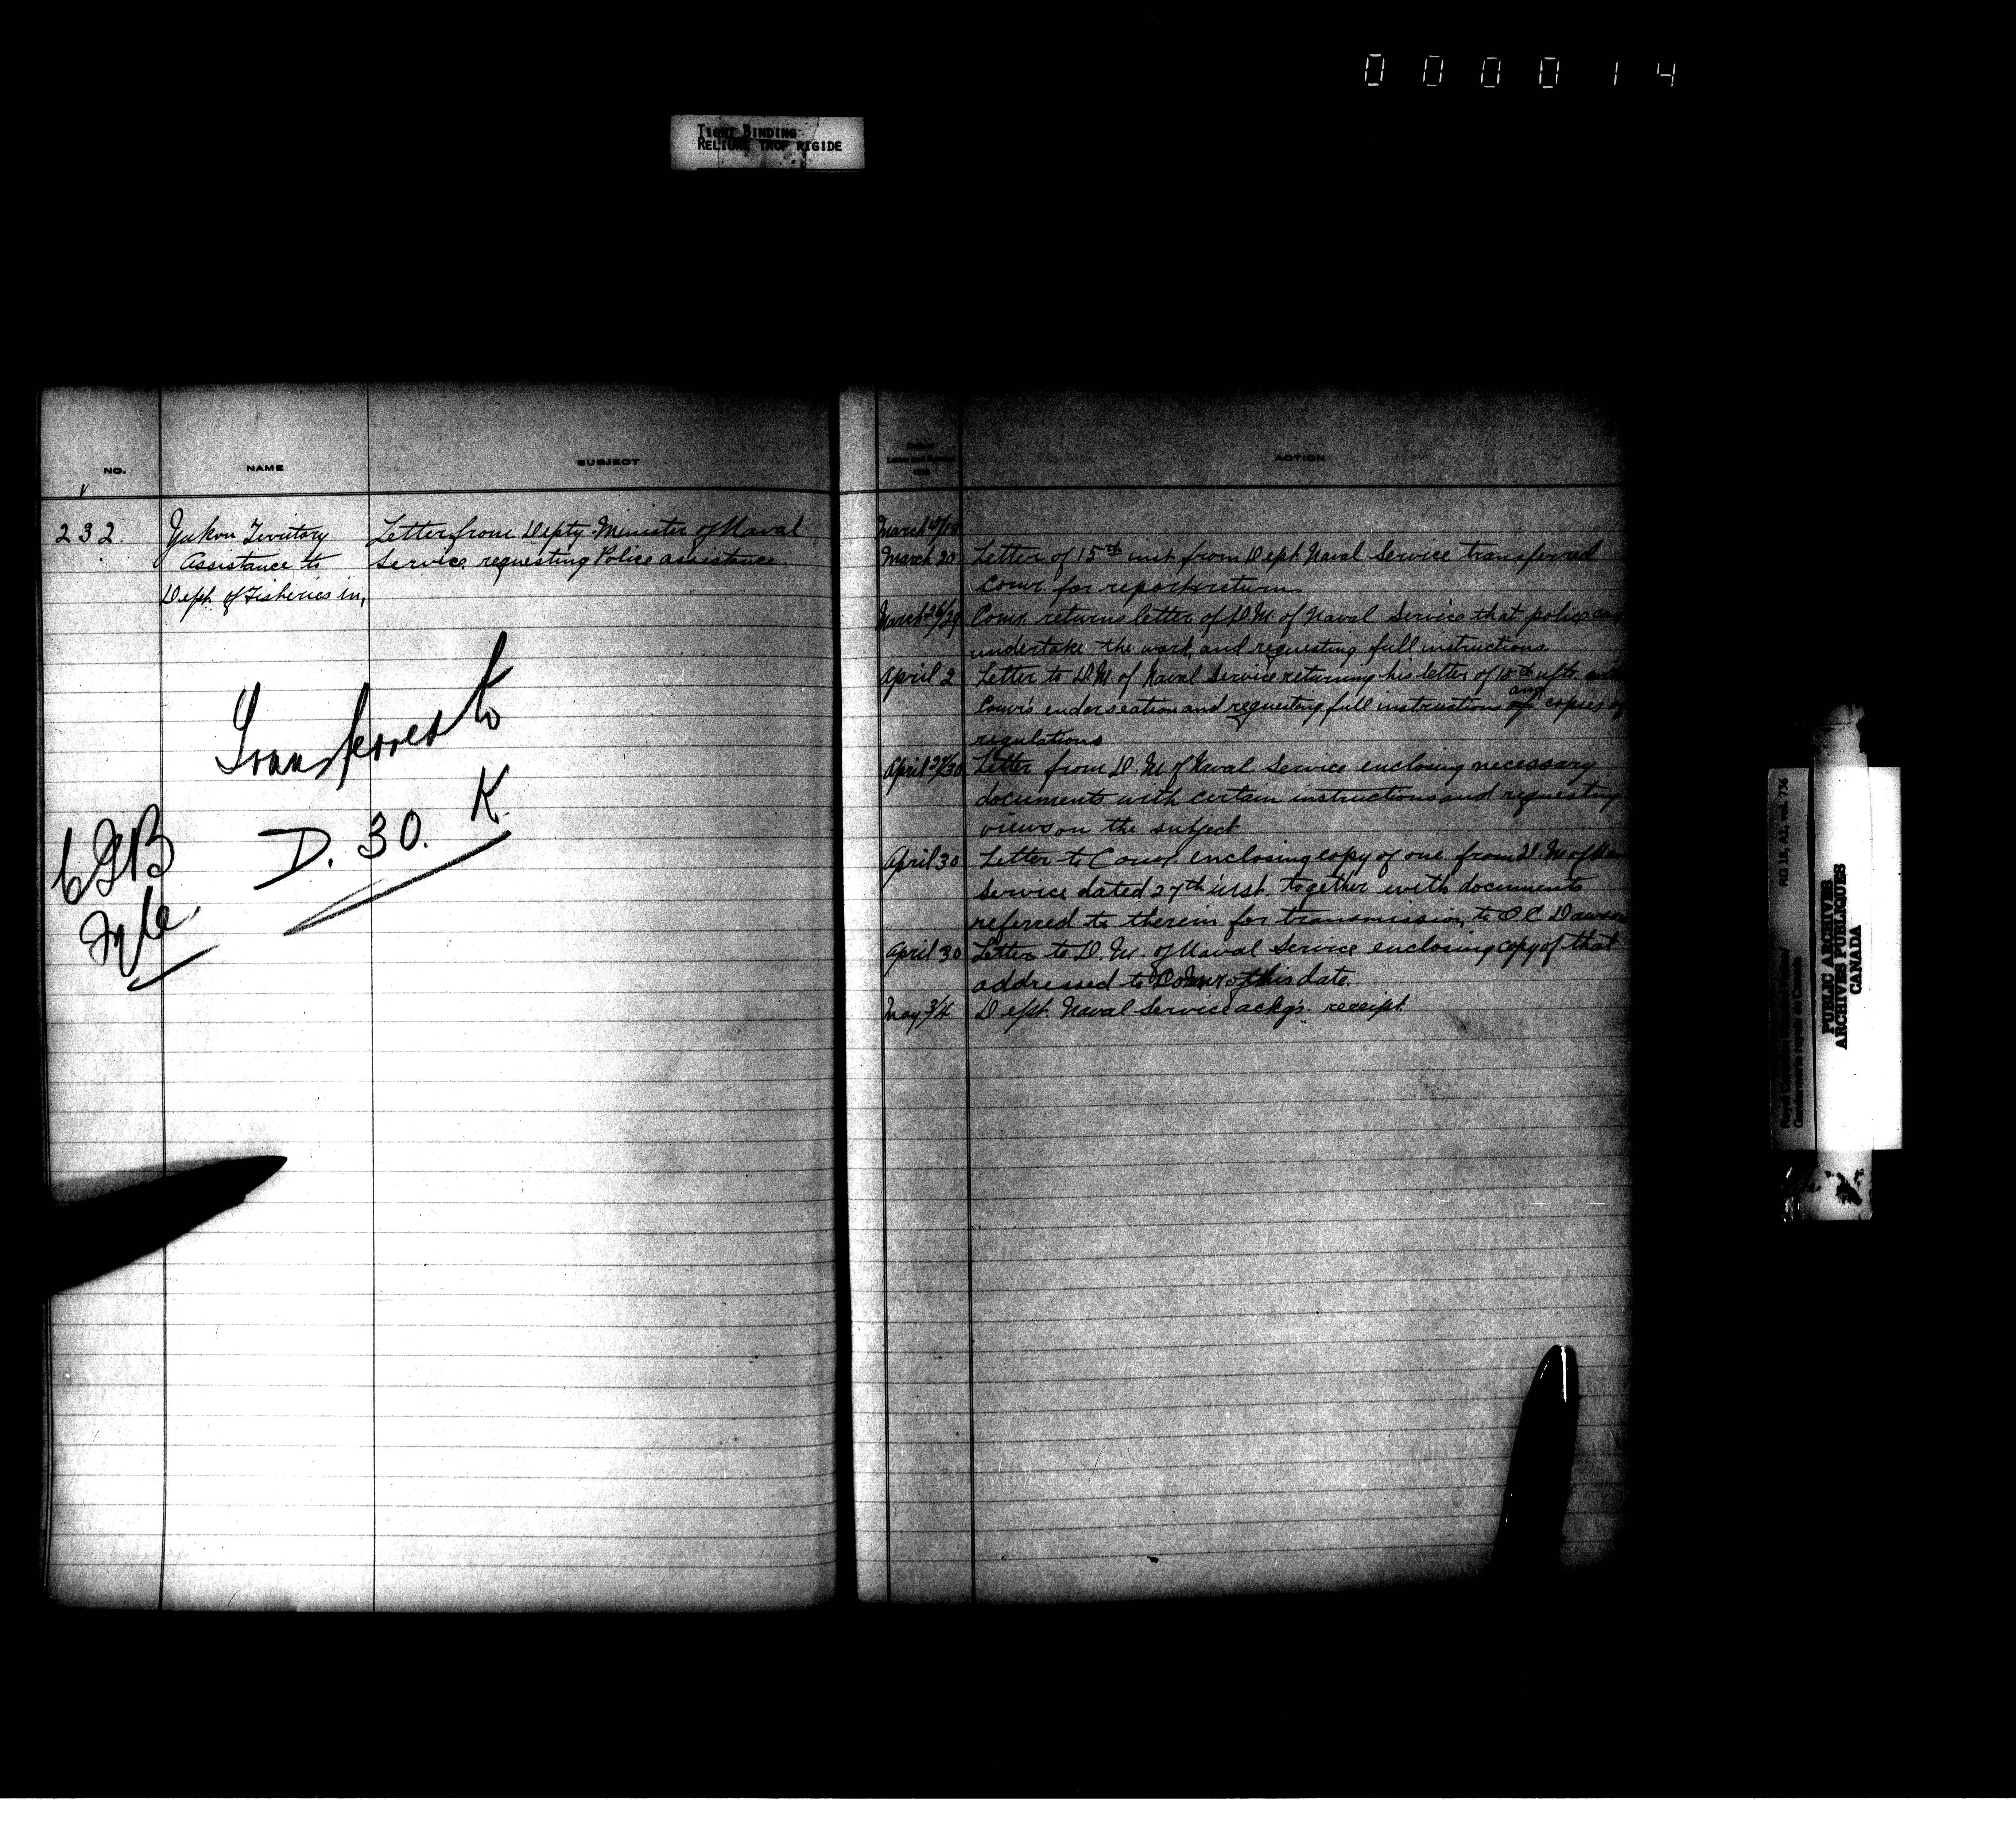 000014
TIGHT BINDING
RELIURE TROP RIGIDE
NO.
NAME
SUBJECT
232.
Yukon Territory
Assistance to
Dept. of Fisheries in,
Letter from Depty. Minister of Naval
Service requesting Police assistance.
Transferred to
D. 30. K.
Letter and
ACTION
March 15/18
March 20 Letter of 15th inst. from Dept. Naval Service transferred
Comr. for report & return
March 26/29 Comr. returns letter of D.M. of Naval Service that police can
undertake the work, and requesting full instructions.
April 2 Letter to D.M. of Naval Service returning his letter of 15th ulto.
Comr's endorseation and requesting full instructions and copies of
regulations
April 27/30 Letter from D.M. of Naval Service enclosing necessary
documents with certain instructions and requesting
views on the subject
April 30 Letter to Comr. enclosing copy of one from D.M. of
Service dated 27th inst. together with documents
referred to therein for transmission to O.C. Dawson
April 30 Letter to D.M. of Naval Service enclosing copy of that
addressed to Comr. of this date.
May 3/4 Dept. Naval Service ackg's. receipt.
RG 18, A1, vol. 736
PUBLIC ARCHIVES
ARCHIVES PUBLIQUES
CANADA